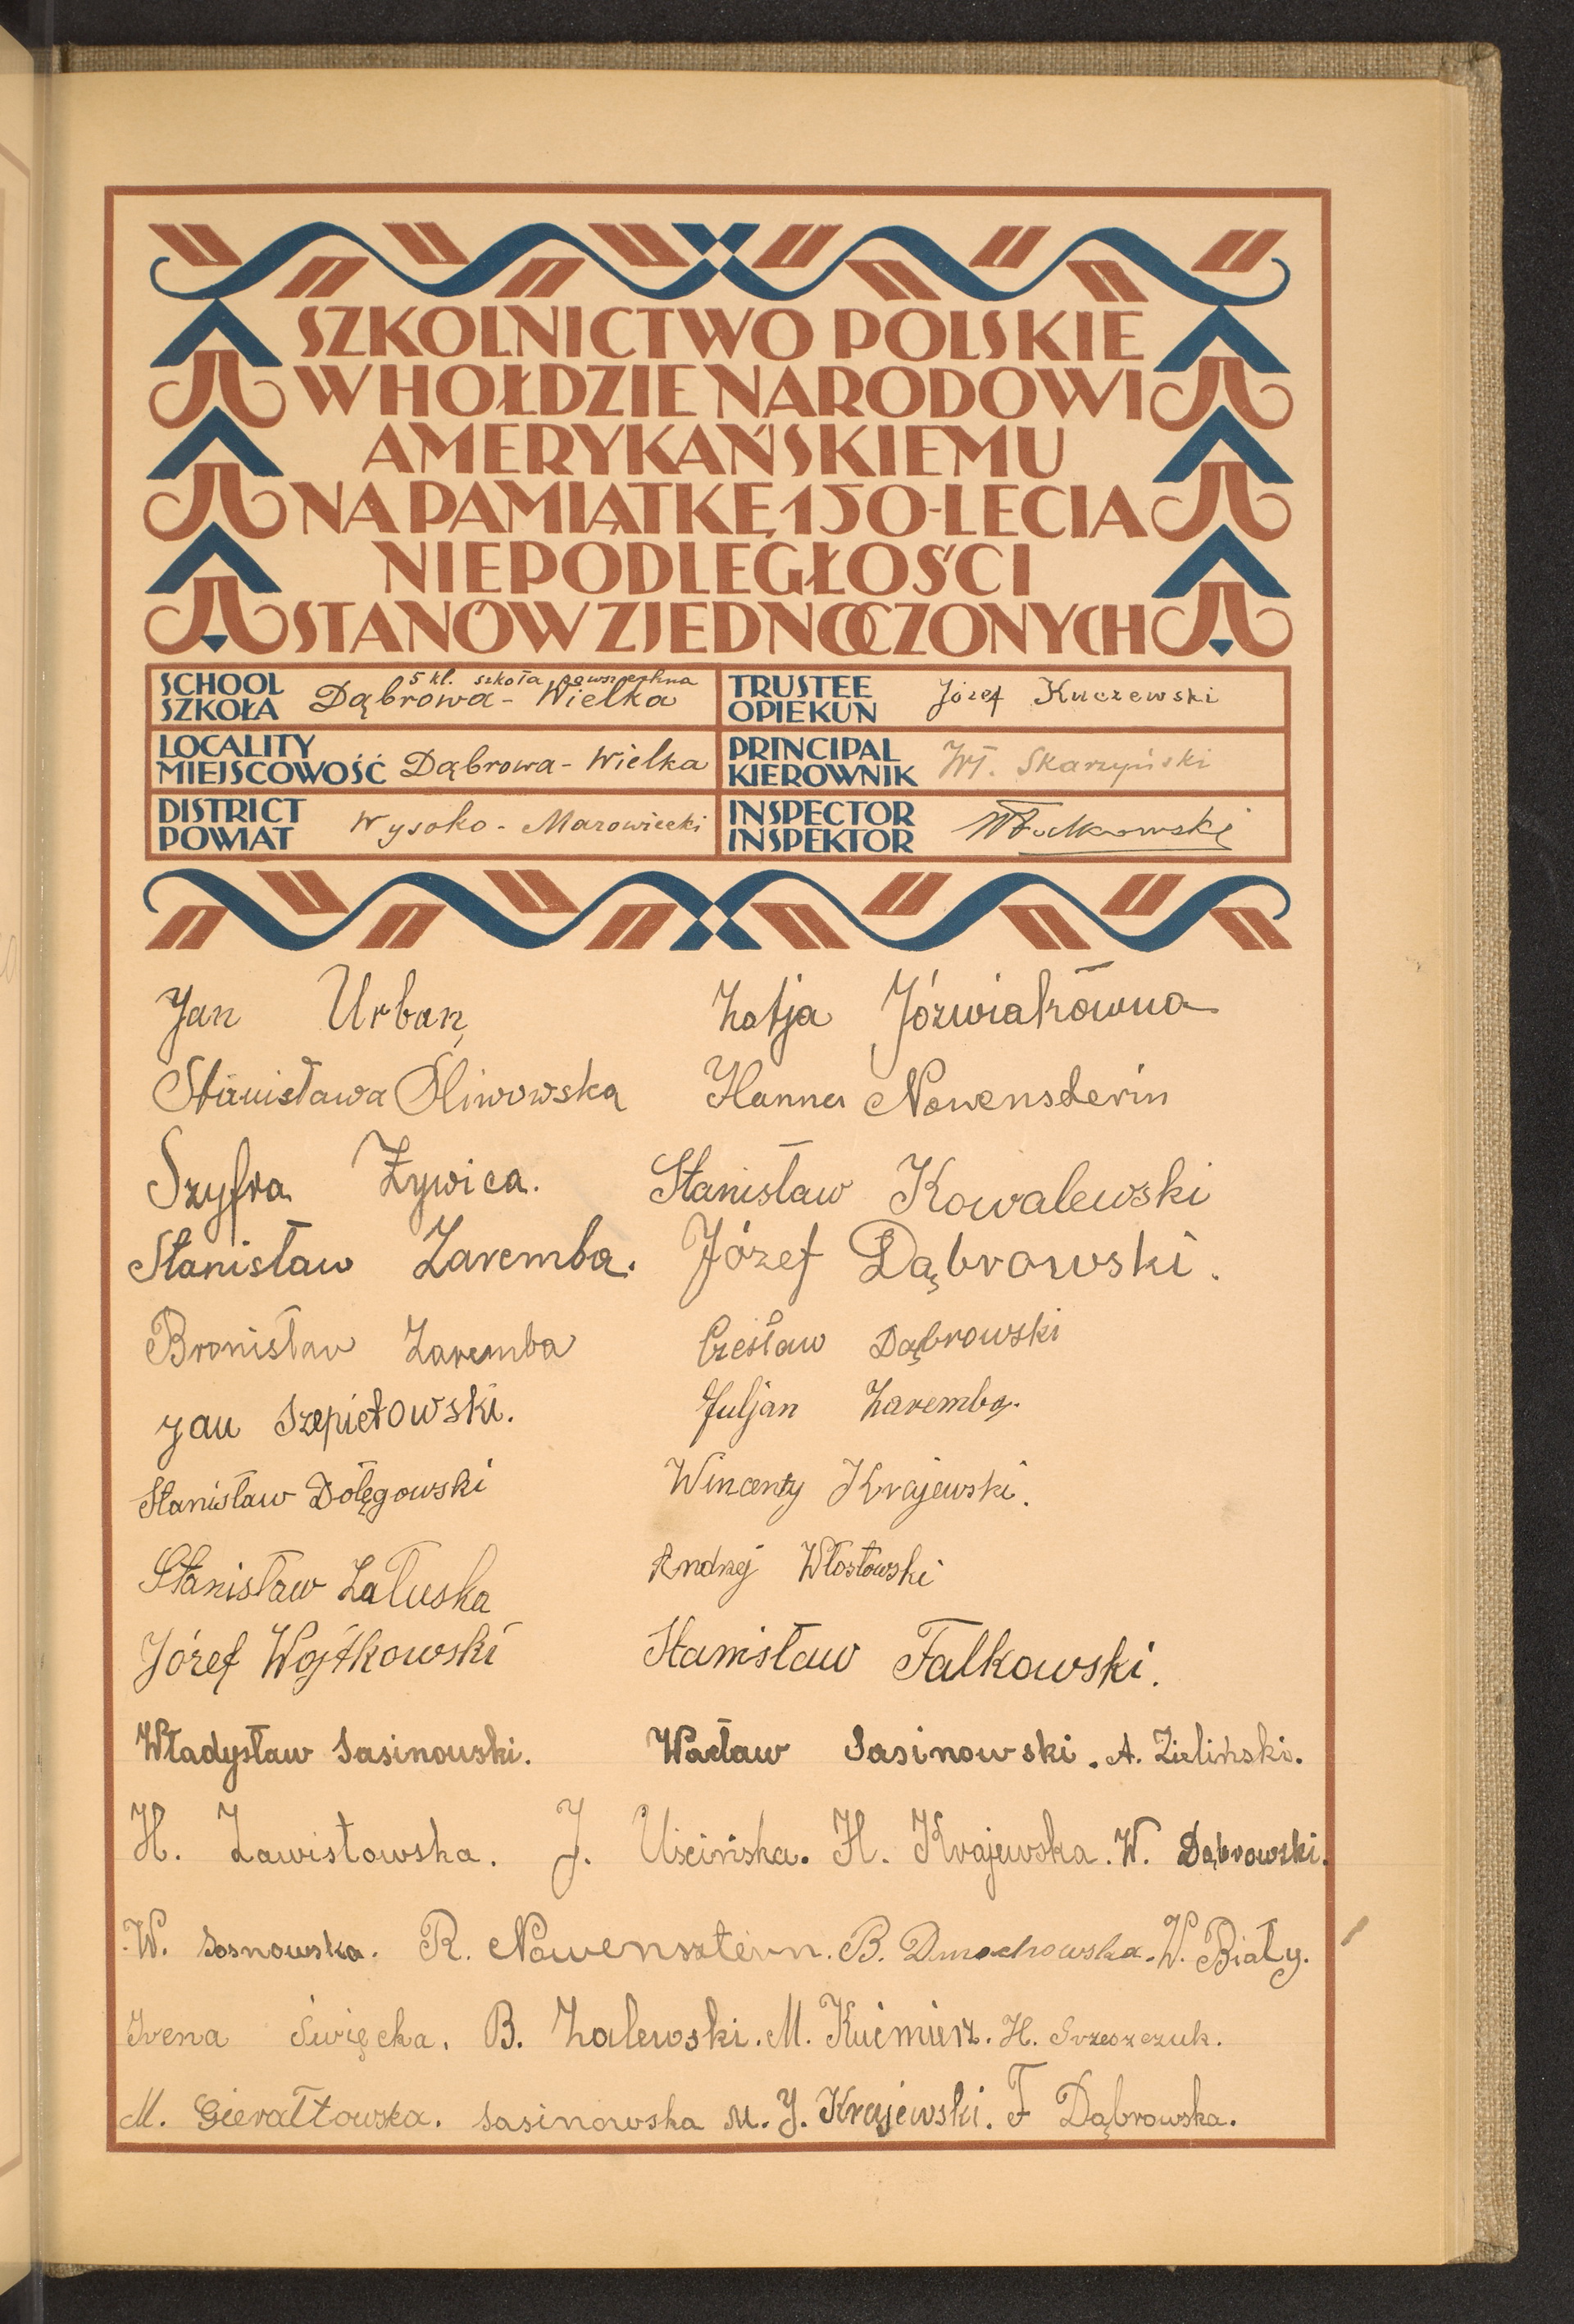 SZKOLNICTWO POLSKIE
W HOŁDZIE NARODOWI
AMERYKAŃSKIEMU
NA PAMIĄTKĘ 150-LECIA
NIEPODLEGŁOŚCI
STANÓW ZJEDNOCZONYCH
SCHOOL
SZKOŁA
5 kl. szkoła powszechna
Dąbrowa - Wielka
TRUSTEE
OPIEKUN
Józef Kuczewski
LOCALITY
MIEJSCOWOŚĆ
Dąbrowa - Wielka
PRINCIPAL
KIEROWNIK
Wł. Skarzyński
DISTRICT
POWIAT
Wysoko - Mazowiecki
INSPECTOR
INSPEKTOR
Jan Urban Katja Józwiakówna
Stanisława Śliwowska Hanna Nowensztein
Szyfra Żywica. Stanisław Kowalewski
Stanisław Zaremba. Józef Dąbrowski.
Bronisław Zaremba Czesław Dąbrowski
Jan Szepietowski. Juljan Zaremba.
Stanisław Dołęgowski Wincenty Krajewski.
Stanisław Załuska Andrzej Włostowski
Józef Wojtkowski Stanisław Falkowski.
Władysław Sasinowski. Wacław Sasinowski. A. Zieliński.
H. Zawistowska. J. Uścińska. H. Krajewska. W. Dąbrowski.
W. Sosnowska. R. Nowensztern. B. Dmochowska. W. Biały.
Irena Święcka. B. Zalewski. M. Kuimierz. H.
M. Gierałtowska. Sasinowska M. J. Krajewski. F Dąbrowska.